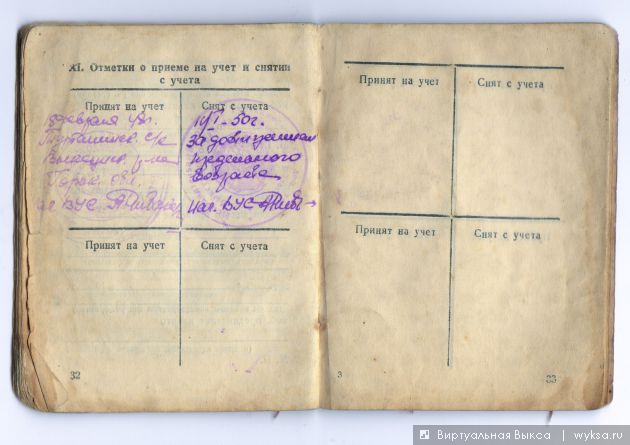 XI. Отметки о приеме на учет и снятии
с учета
Принят на учет
февраля
с/с
обл.
ВУС
Снят с учета
50г.
За достижением
предельного
возраста
Нач. ВУС
Принят на учет
Снят с учета
32
Принят на учет
Снят с учета
Принят на учет
Снят с учета
3
33
Виртуальная Выкса | wyksa.ru